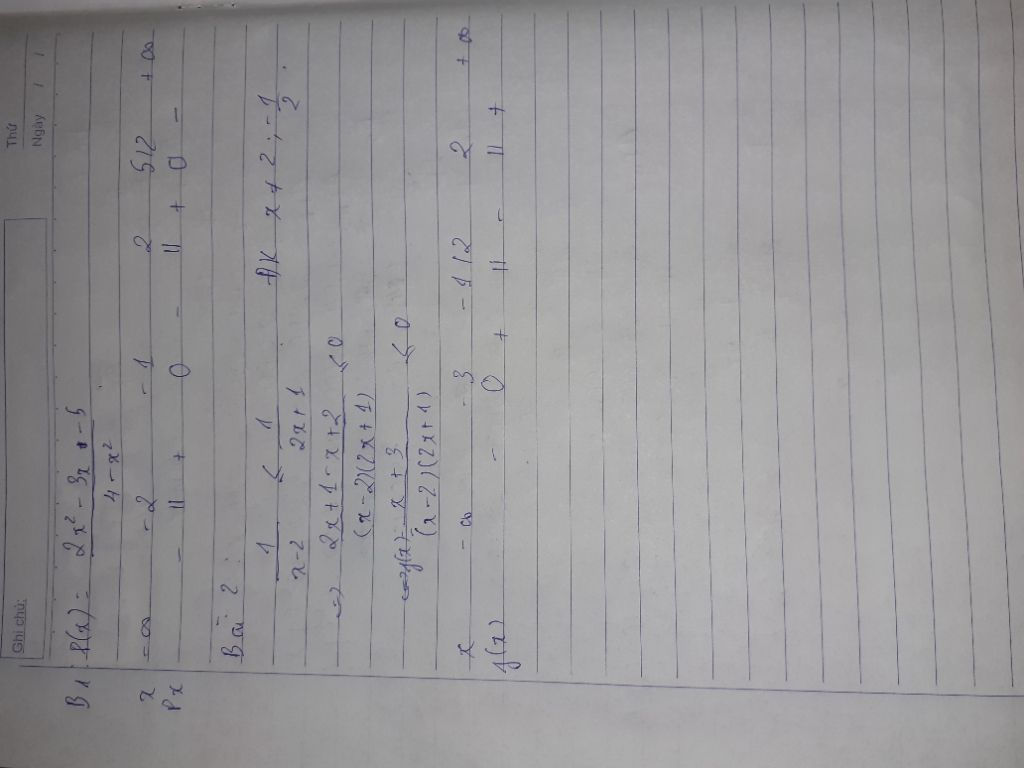 Ghi chú:
Thứ
Ngày / /
B1: P(x) = 2x² - 3x - 5
4 - x²
x -∞ -2 -1 2 5/2 +∞
Px - || + 0 - || + 0 -
Bài 2:
1 < 1 ĐK x ≠ 2 ; -1
x-2 2x+1 2
<=> 2x+1-x+2 < 0
(x-2)(2x+1)
<=> f(x) = x+3 < 0
(x-2)(2x+1)
x -∞ -3 -1/2 2 +∞
f(x) - 0 + || - || +